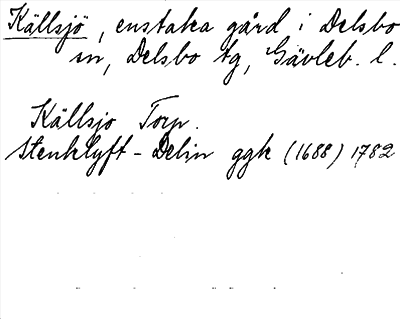 Källsjö, enstaka gård i Delsbo
sn, Delsbo tg, Gävleb. l.
Källsjo Torp.
Stenklyft - Delin ggk (1688) 1782